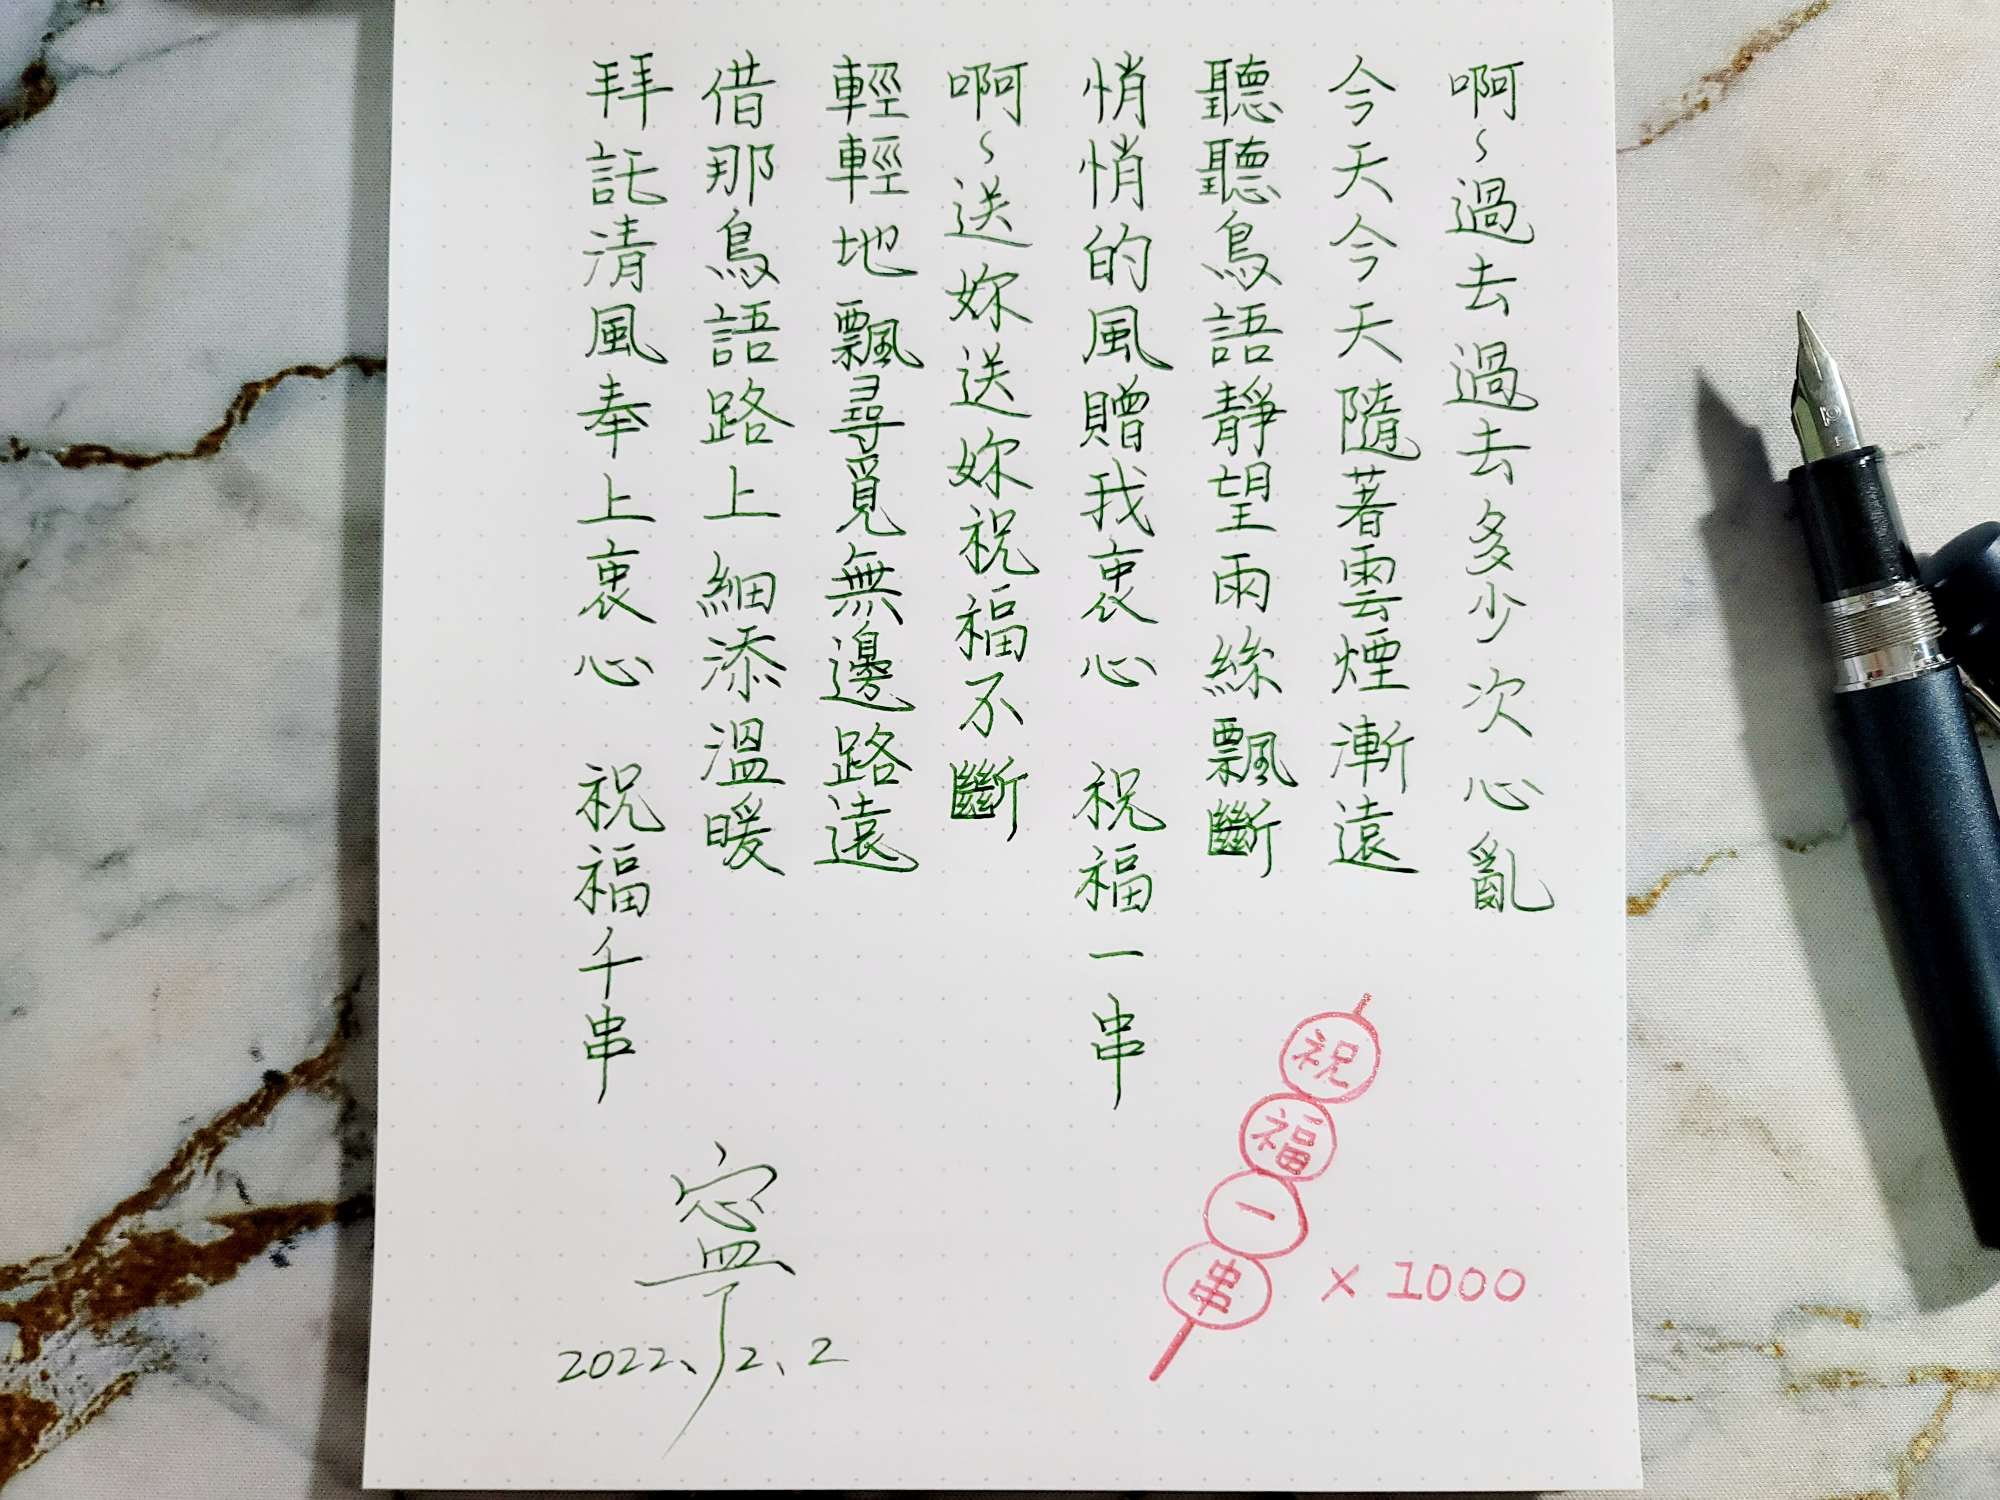 啊~過去過去多少次心亂
今天今天隨著雲煙漸遠
聽聽鳥語靜望雨絲飄斷
悄悄的風贈我衷心 祝福一串
啊~送妳送妳祝福不斷
輕輕地飄尋覓無邊路遠
借那鳥語路上細添溫暖
拜託清風奉上衷心 祝福千串
祝福一串 x 1000
寧
2022、2、2